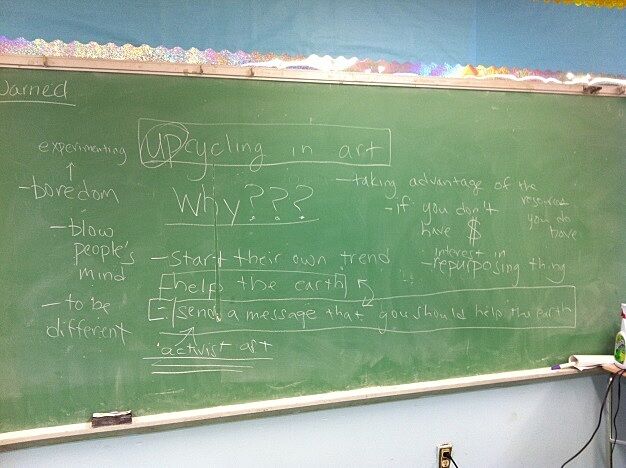 UPcycling in art
Why???
experimenting
- boredom
- blow
people's
mind
- to be
different
- start their own trend
help the earth
send a message that you should help the earth
activist art
- taking advantage of the
resources
you do
have
- if you don't
have $
interest in
- repurposing thing